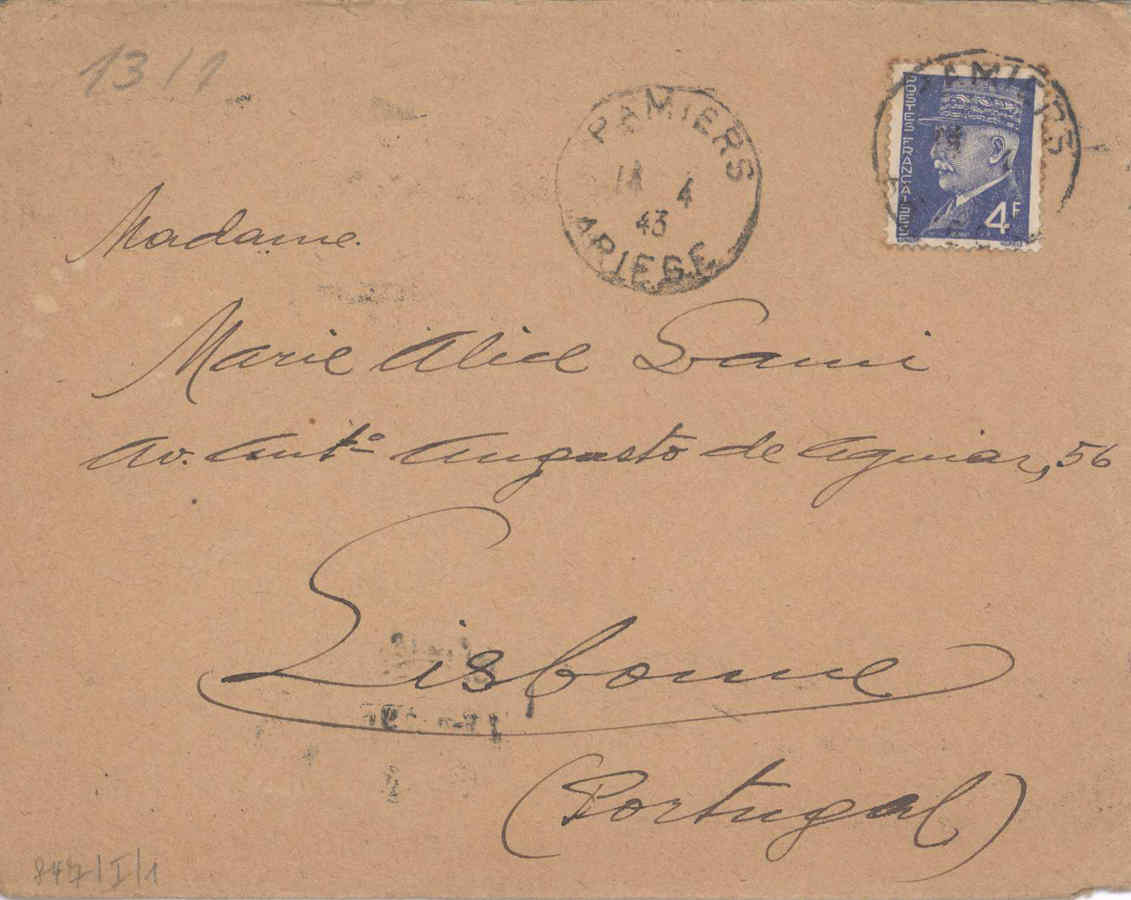 13/1
PAMIERS
18 4
43
ARIEGE
PAMIERS
POSTES FRANÇAISES
4F
Madame
Marie Alice Sami
Av. Antº Augusto de Aguiar, 56
Lisbonne
(Portugal)
847/I/1